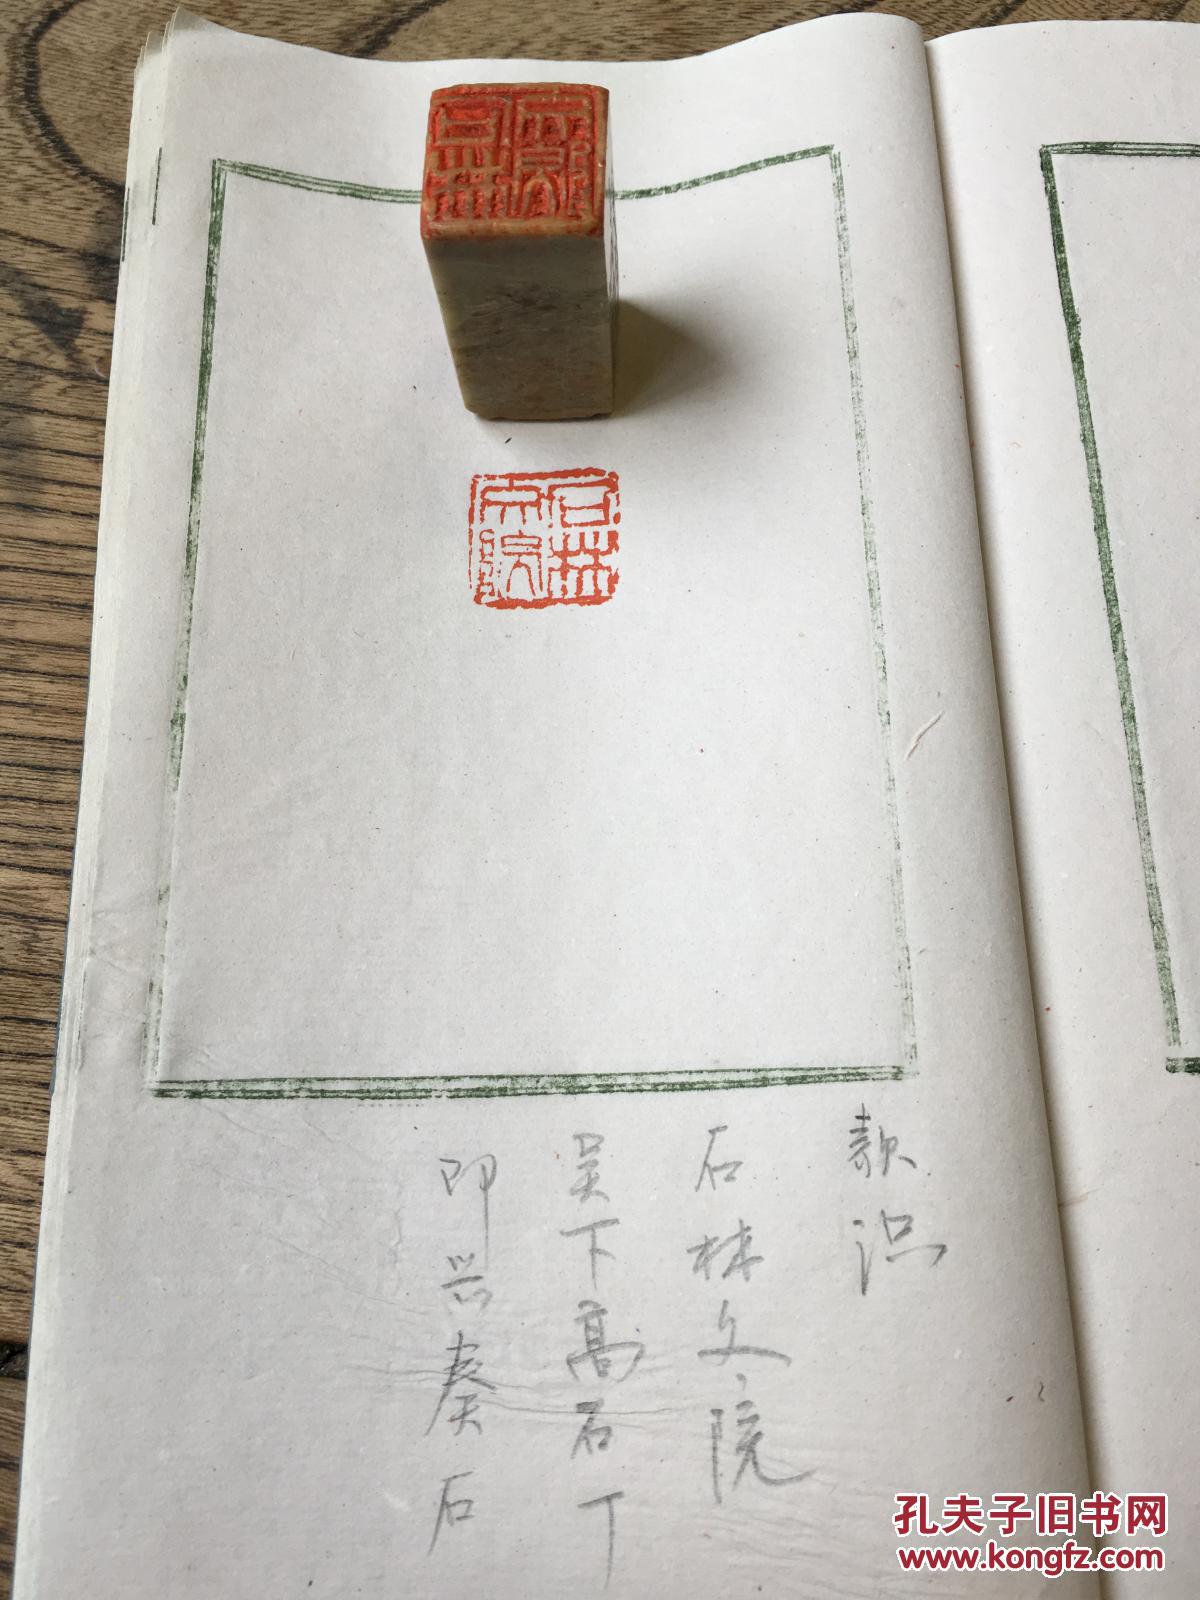 石林
文院
款识
石林文院
吴下高石丁
即兴奏石
孔夫子旧书网
www.kongfz.com